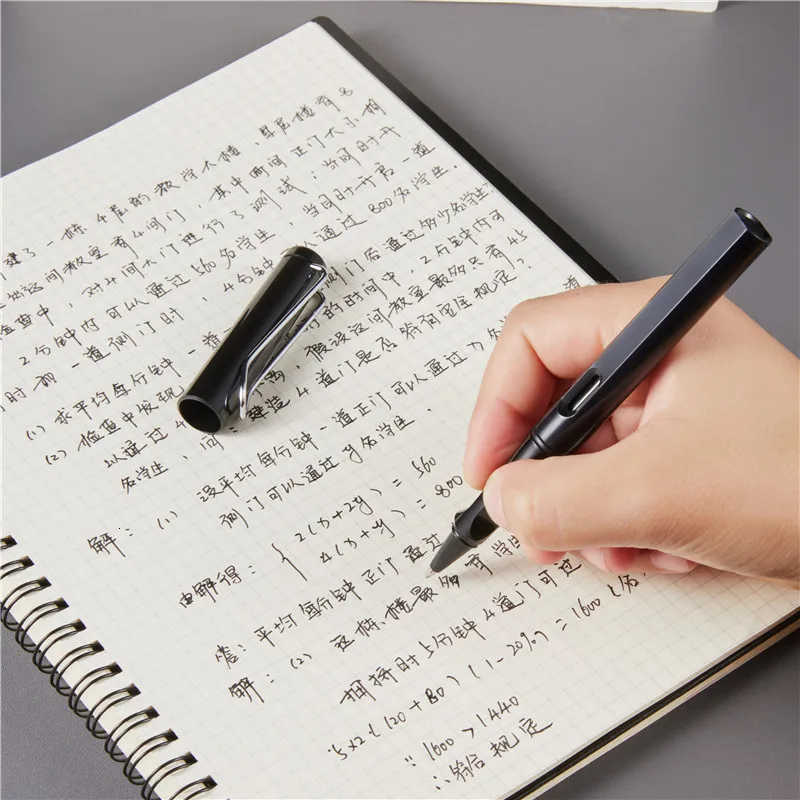 建了一栋4层的教学大楼,每层楼有8
间教室有4间门,其中两间正门大小相
检查中,对4间大门进行了测试:当同时开
2分钟内可以通过560名学生,当同时开启一道
时和一道侧门时,4分钟 通过800名学生.
(1) 求平均每分钟一道 侧门后通过多少名学生
(2) 检查中发现 的时间中,2分钟内可
以通过4 离,假设这间教室最多只有45
名学生,问:建造4道门是否符合安全规定?
解:(1) 设平均每分钟一道正门可以通过
侧门可以通过y名学生.
2(x+2y)=560
4(x+y)=800
由解得:
答:平均每分钟正门通过
解:(2) 这栋楼最多有学
拥挤时5分钟4道门可过
5×2(120+80)(1-20%)=1600
∵1600>1440
∴符合规定